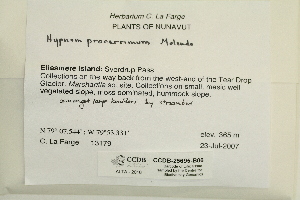 Herbarium C. La Farge
PLANTS OF NUNAVUT
Hypnum procerrimum Molendo
Ellesmere Island: Sverdrup Pass
Collections on the way back from the west-end of the Tear Drop
Glacier, Marchantia sp. site. Collections on small, mesic well
vegetated slope, moss dominated, hummock slope.
amongst large boulders by streambed
elev. 365 m
C. La Farge 13179
23-Jul-2007
CCDB
CCDB-25695-B06
ALTA - 2016